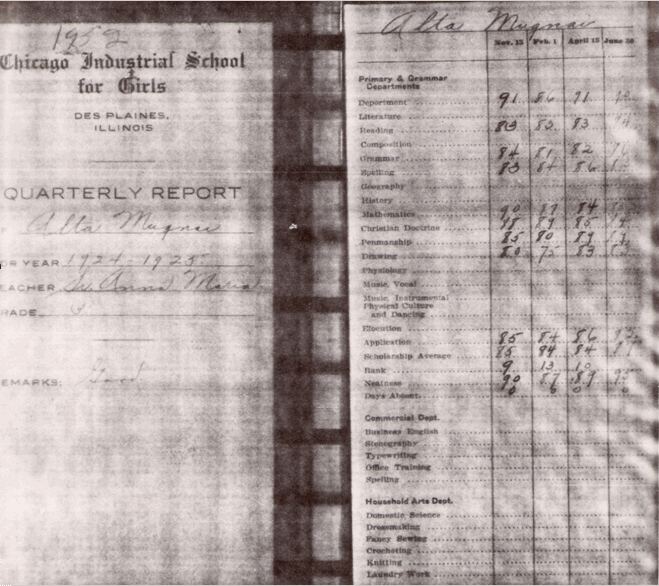 1952
Chicago Industrial School
for Girls
DES PLAINES,
ILLINOIS
QUARTERLY REPORT
Alta Mugnai
OR YEAR 1924-1925
EACHER Sr. Anna Maria
RADE
EMARKS: Good
Alta Mugnai
Nov. 15 Feb. 1 April 15 June 20
Primary & Grammar
Departments
Department 91 86 91
Literature
Reading 83 83 83
Composition
Grammar 84 81 82
Spelling 83 84 86
Geography
History
Mathematics 90 87 84
Christian Doctrine 88 89 85
Penmanship 85 80 89
Drawing 80 75 83
Physiology
Music, Vocal
Music, Instrumental
Physical Culture
and Dancing
Elocution
Application 85 84 86
Scholarship Average 85 84 84
Rank 9 13 10
Neatness 90 87 89
Days Absent 0 0 0 0
Commercial Dept.
Business English
Stenography
Typewriting
Office Training
Spelling
Household Arts Dept.
Domestic Science
Dressmaking
Fancy Sewing
Crocheting
Knitting
Laundry Work